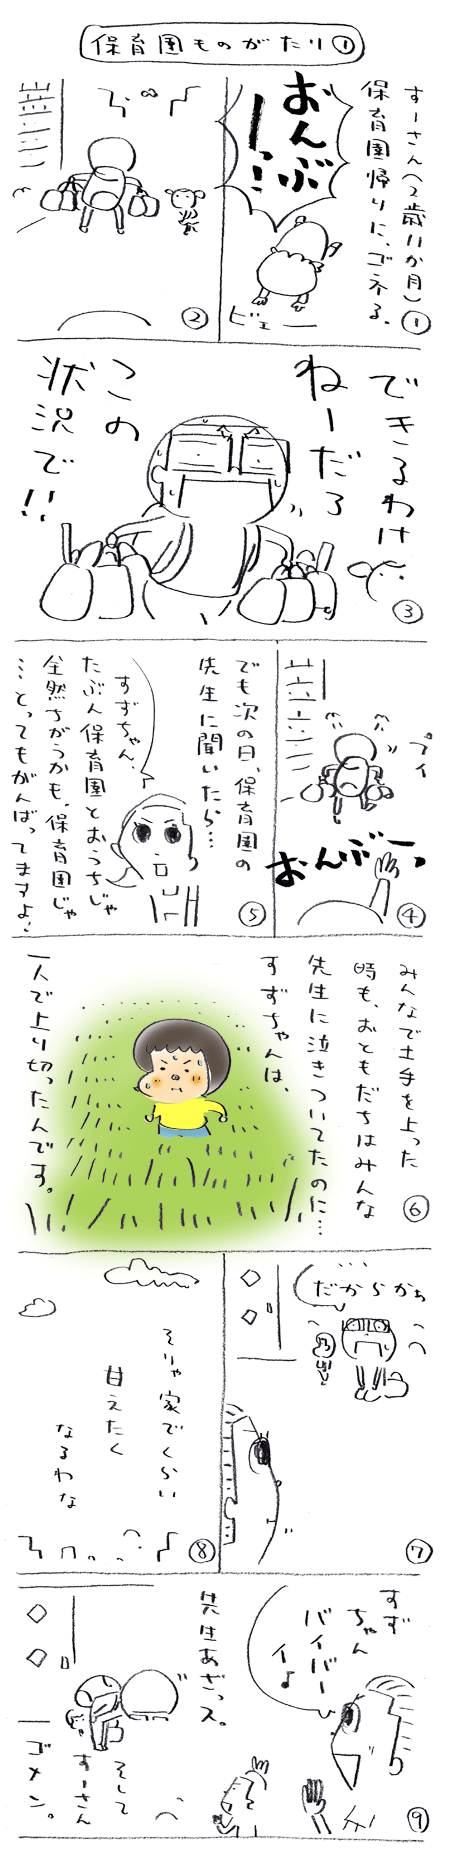 保育園ものがたり①
すーさん(2歳11か月)
保育園帰りに、ゴネる。
①
おんぶ
ーっ!
ビェー
②
できるわけ
ねーだろ
この
状況で!!
③
プイ
おんぶーっ
④
でも次の日、保育園の
先生に聞いたら…
すずちゃん、
たぶん保育園とおうちじゃ
全然ちがうかも。保育園じゃ
…とってもがんばってますよ!
⑤
みんなで土手を上った
時も、おともだちはみんな
先生に泣きついてたのに…
すずちゃんは、
一人で上り切ったんです。
⑥
だからかぁ
…
⑦
そりゃ家でくらい
甘えたく
なるわな
⑧
すず
ちゃん
バイバー
イ♪
先生あざっス。
そして
すーさん
ゴメン。
⑨